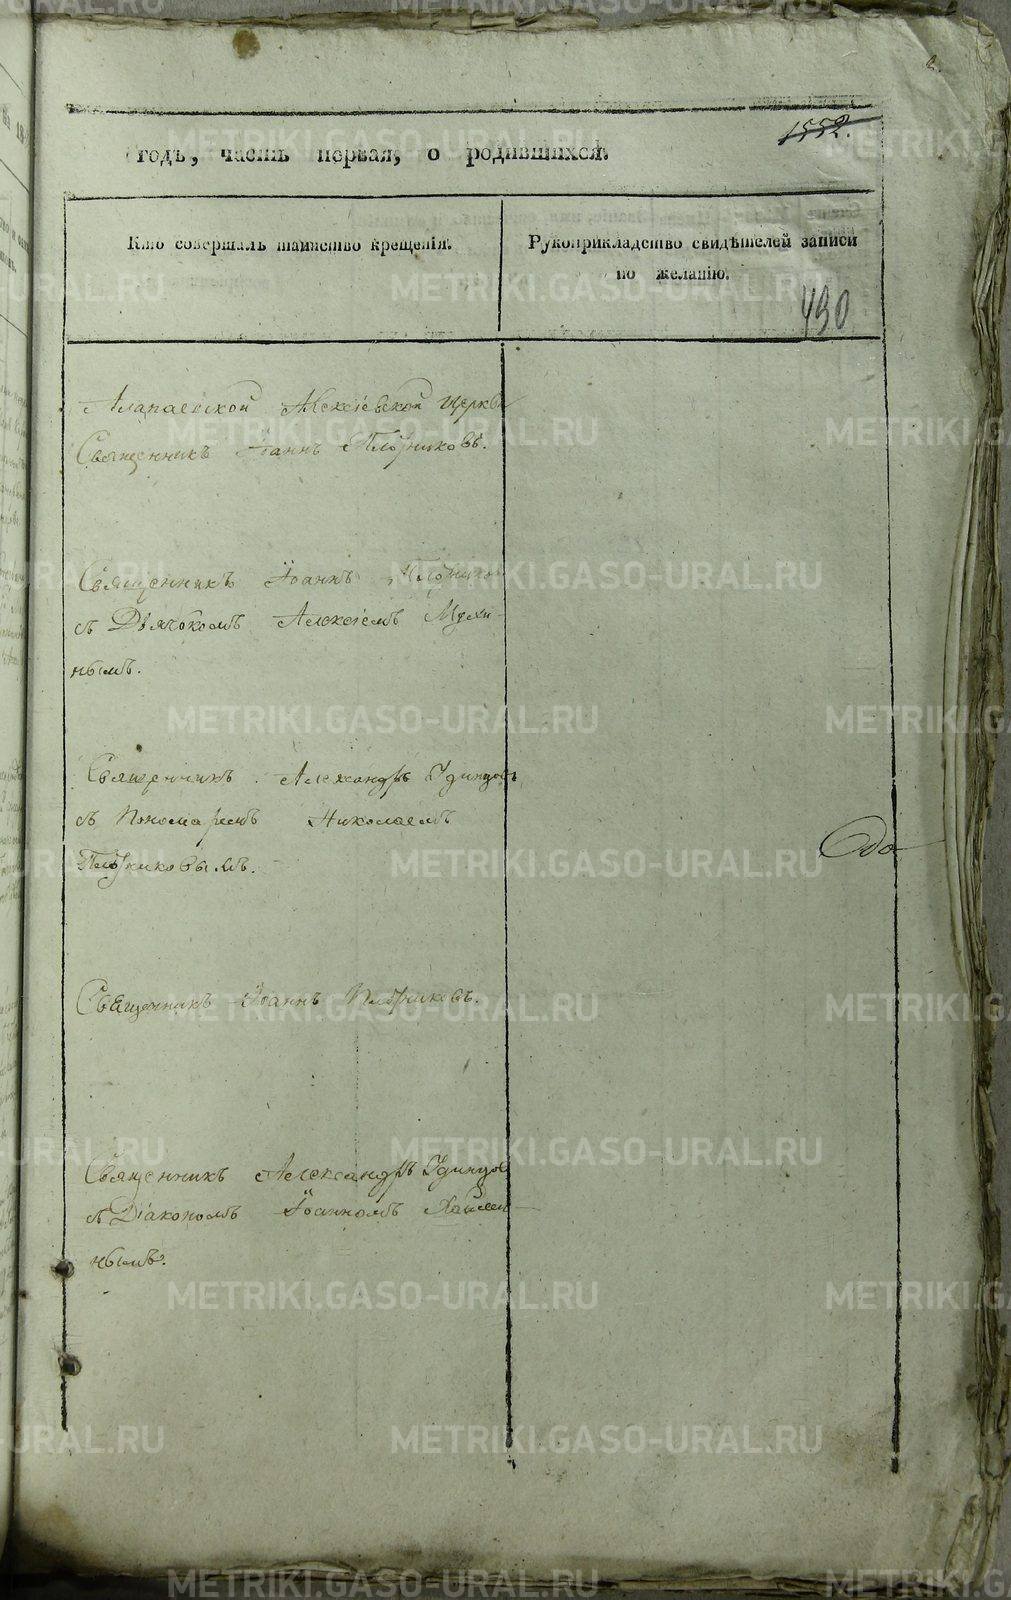 2.
1552.
годъ, часть первая, о родившихся.
Кто совершалъ таинство крещенія.
Рукоприкладство свидѣтелей записи
по желанію.
490
Алапаевской Алексіевской церкви
Священникъ Іоаннъ Плотниковъ.
Священникъ Іоаннъ
съ Дьячкомъ Алексіемъ
нымъ.
Священникъ Александръ Удинцовъ
съ Пономаремъ Николаемъ
Плотниковымъ.
Священникъ Іоаннъ Плотниковъ.
Священникъ Александръ Удинцов
съ Діакономъ Іоанномъ
нымъ.
METRIKI.GASO-URAL.RU